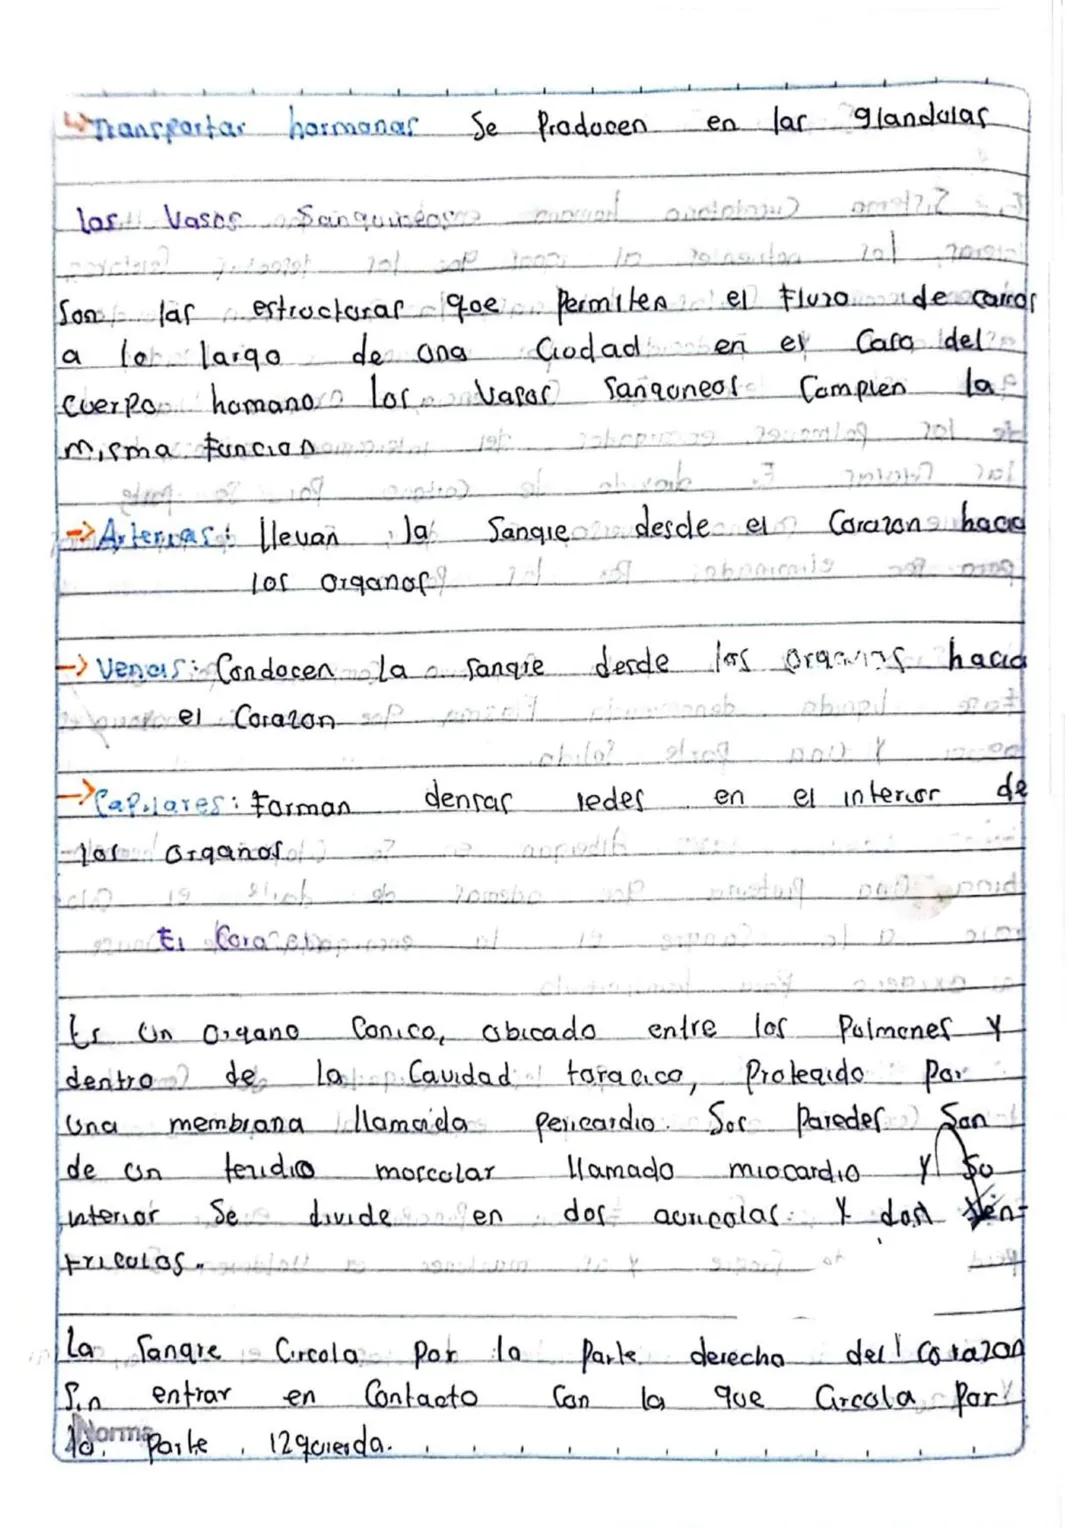 ↳ Transportar hormonas Se Producen en las glandulas
los Vasos Sanquineos
Son las estructuras que Permiten el Fluzo de carros
a lo largo de una Ciudad en el Caso del
cuerpo humano los Vasos Sanquneos Cumplen la
misma Funcion
→ Arterias: llevan la Sangre desde el Corazon hacia
los organos
→ Venas: Conducen la sangre desde los organos hacia
el Corazon
→ Capilares: Forman densas redes en el interior de
los organos
El Corazon
Es Un organo Conico, ubicado entre los Pulmones y
dentro de la Cavidad toracica, Protegido Por
Una membrana llamada pericardio. Sus Paredes Son
de un tejidio muscular llamado miocardio y Su
interior Se divide en dos auricolas y dos Ven-
triculos.
La Sangre Circula Por la Parte derecha del corazon
Sin entrar en Contacto Con la que Circula Por
la Parte izquierda.
Norma